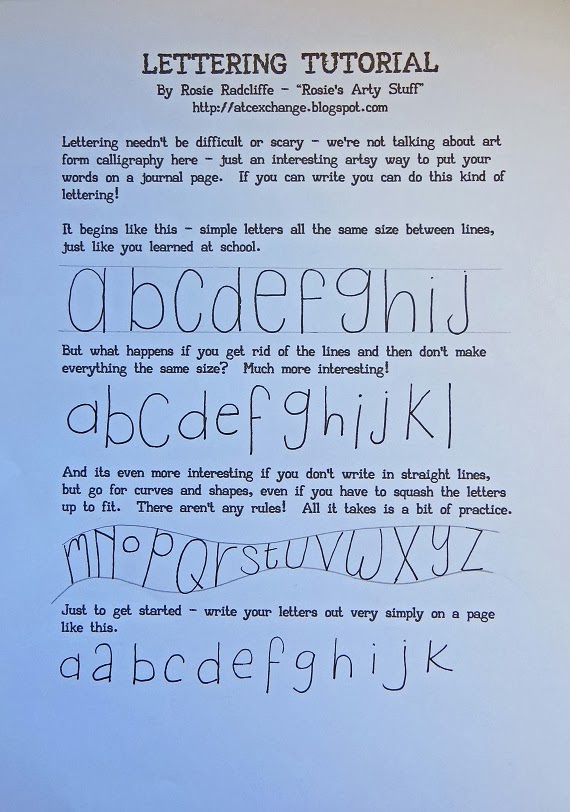 LETTERING TUTORIAL
By Rosie Radcliffe – "Rosie's Arty Stuff"
http://atcexchange.blogspot.com
Lettering needn't be difficult or scary – we're not talking about art
form calligraphy here – just an interesting artsy way to put your
words on a journal page. If you can write you can do this kind of
lettering!
It begins like this – simple letters all the same size between lines,
just like you learned at school.
a b C d e f g h i j
But what happens if you get rid of the lines and then don't make
everything the same size? Much more interesting!
a b C d e f g h i j K l
And its even more interesting if you don't write in straight lines,
but go for curves and shapes, even if you have to squash the letters
up to fit. There aren't any rules! All it takes is a bit of practice.
M N o P Q r s t U V W X y Z
Just to get started – write your letters out very simply on a page
like this.
a a b c d e f g h i j k